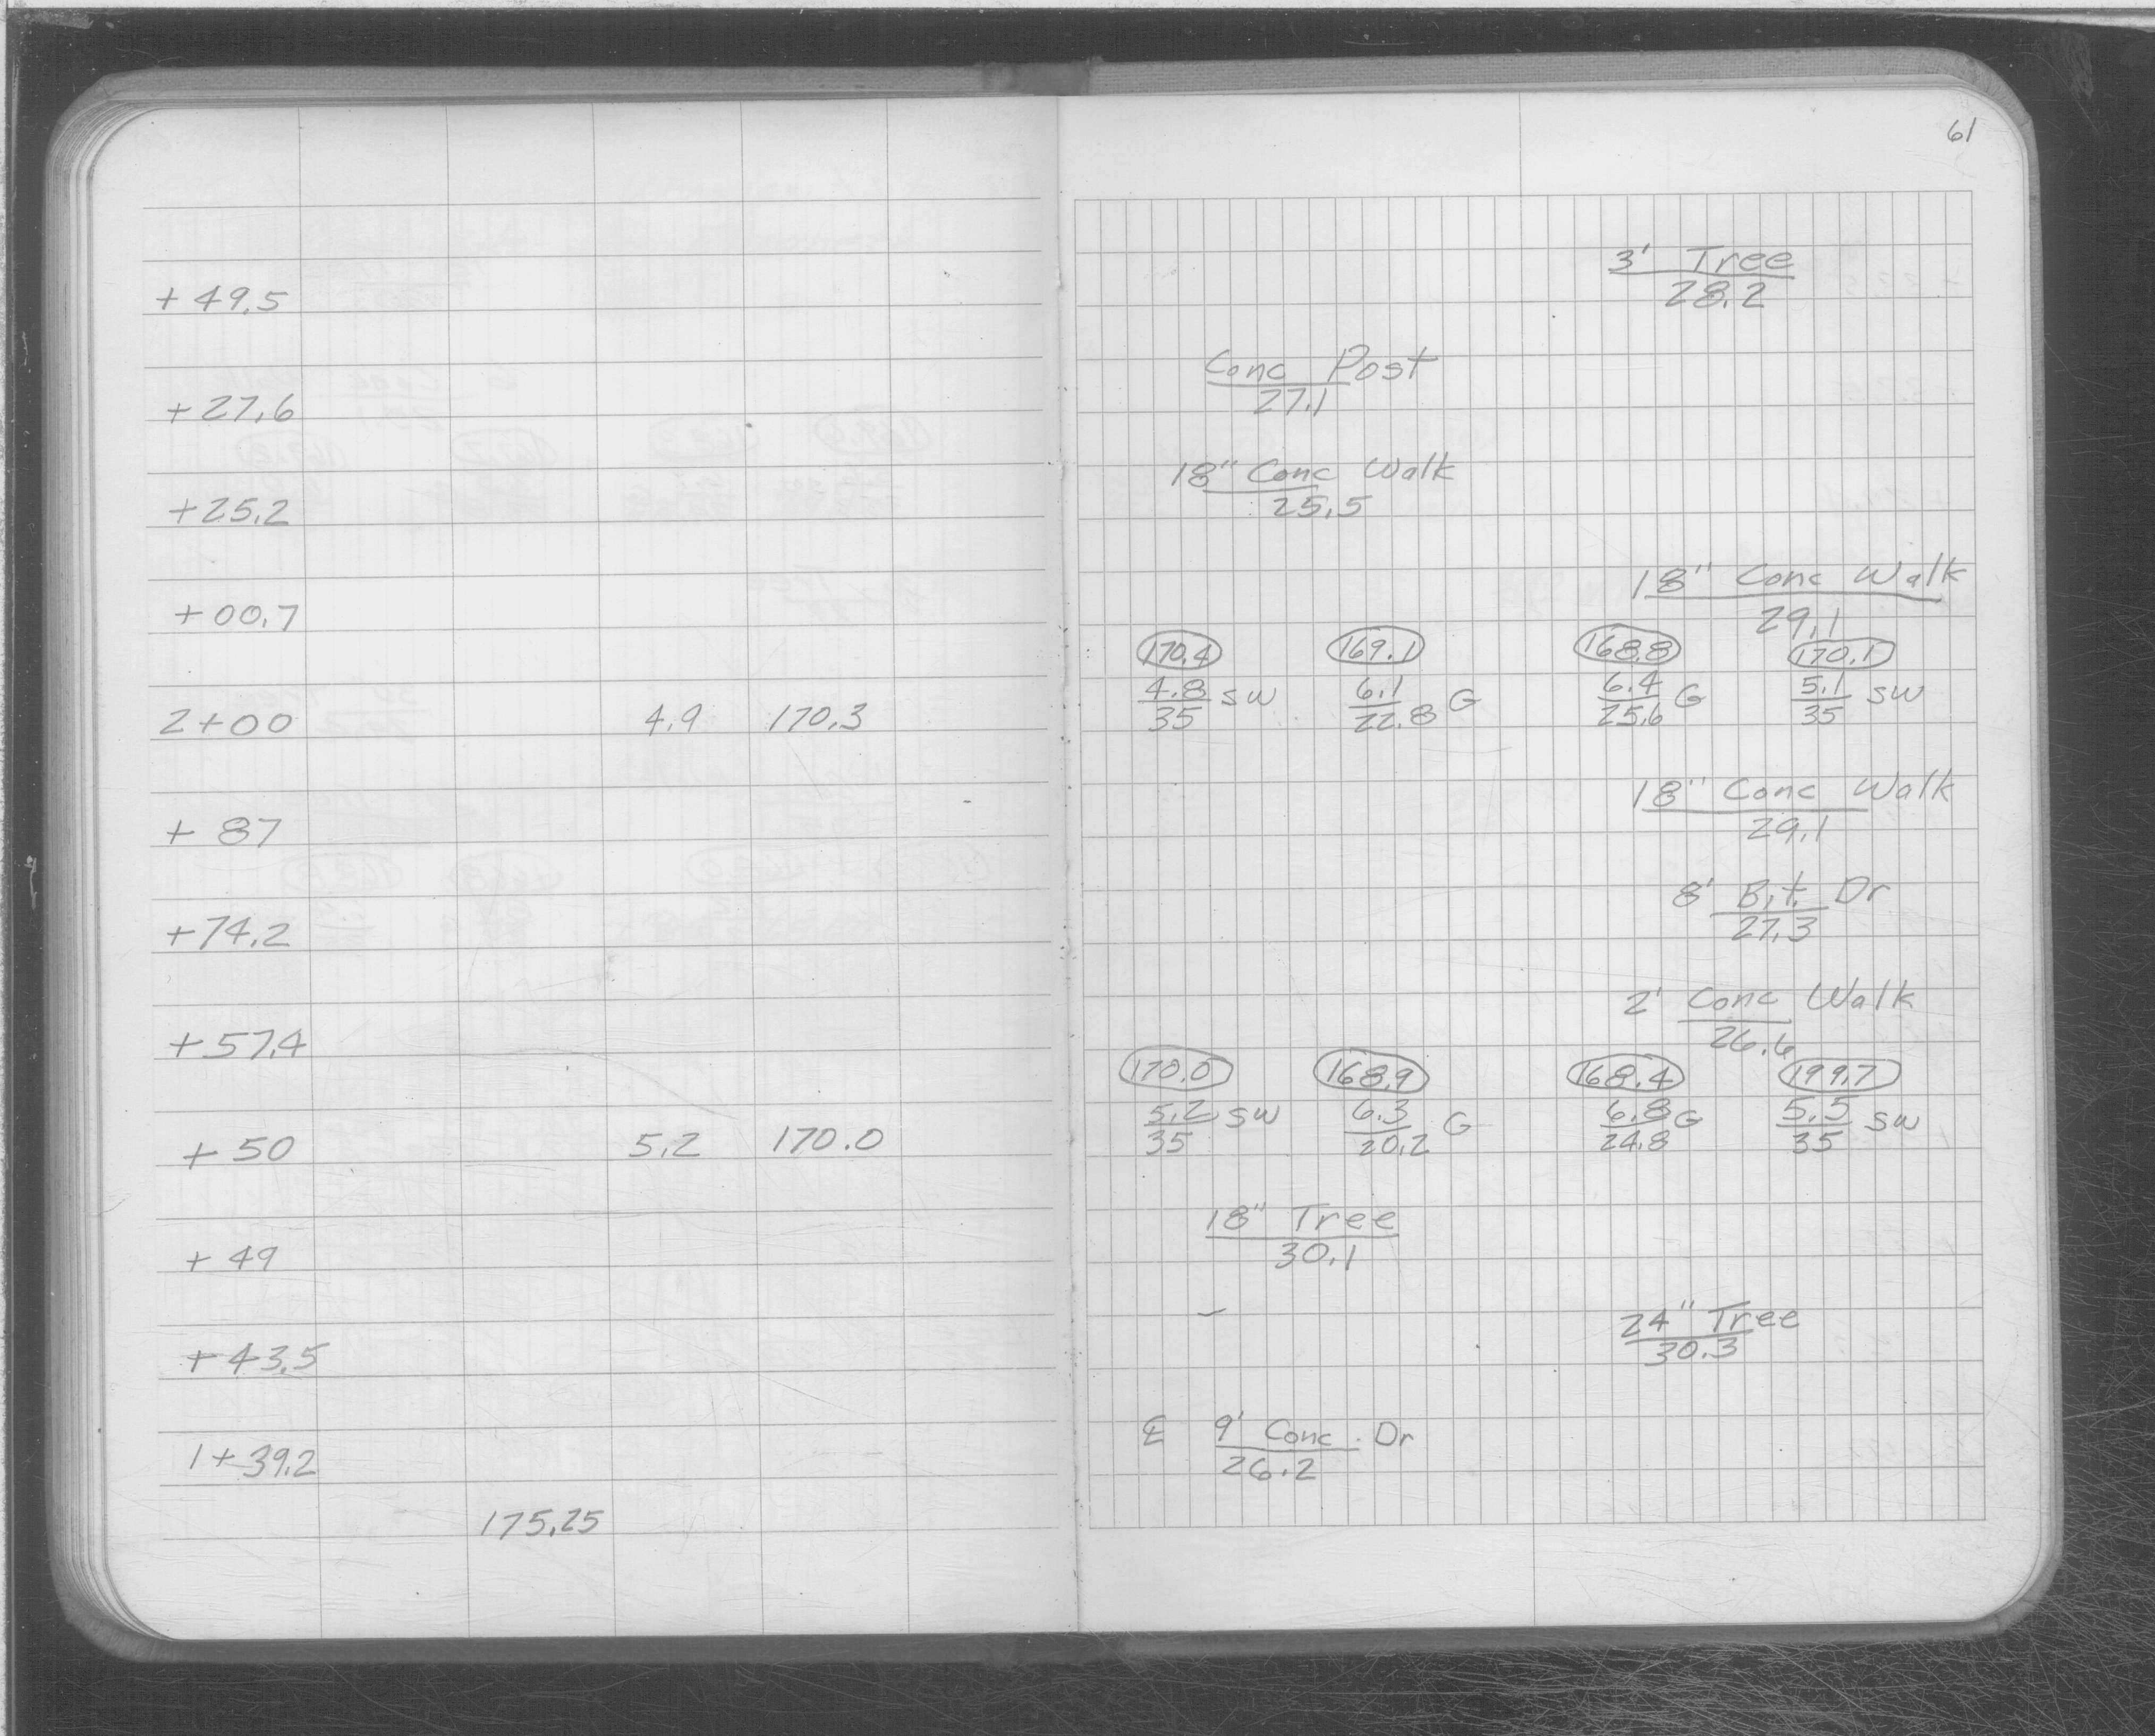 61
3' Tree
+ 49.5 28.2
Conc Post
+ 27.6 27.1
18" Conc Walk
+25.2 25.5
18" Conc Walk
+ 00.7 29.1
170.4 169.1 168.8 170.1
4.8 SW 6.1 G 6.4 G 5.1 SW
2+00 4.9 170.3 35 22.8 25.6 35
18" Conc Walk
+ 87 29.1
8' Bit. Dr
+74.2 27.3
2' Conc Walk
+57.4 26.6
170.0 168.9 168.4 199.7
5.2 SW 6.3 G 6.8 G 5.5 SW
+ 50 5.2 170.0 35 20.2 24.8 35
18" Tree
+ 49 30.1
24" Tree
+ 43.5 30.3
℄ 9' Conc. Dr
1+39.2 26.2
175.25